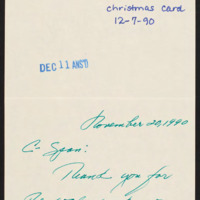 christmas card
12-7-90
DEC 11 ANS'D
November 29, 1990
C-Span:
Thank you for